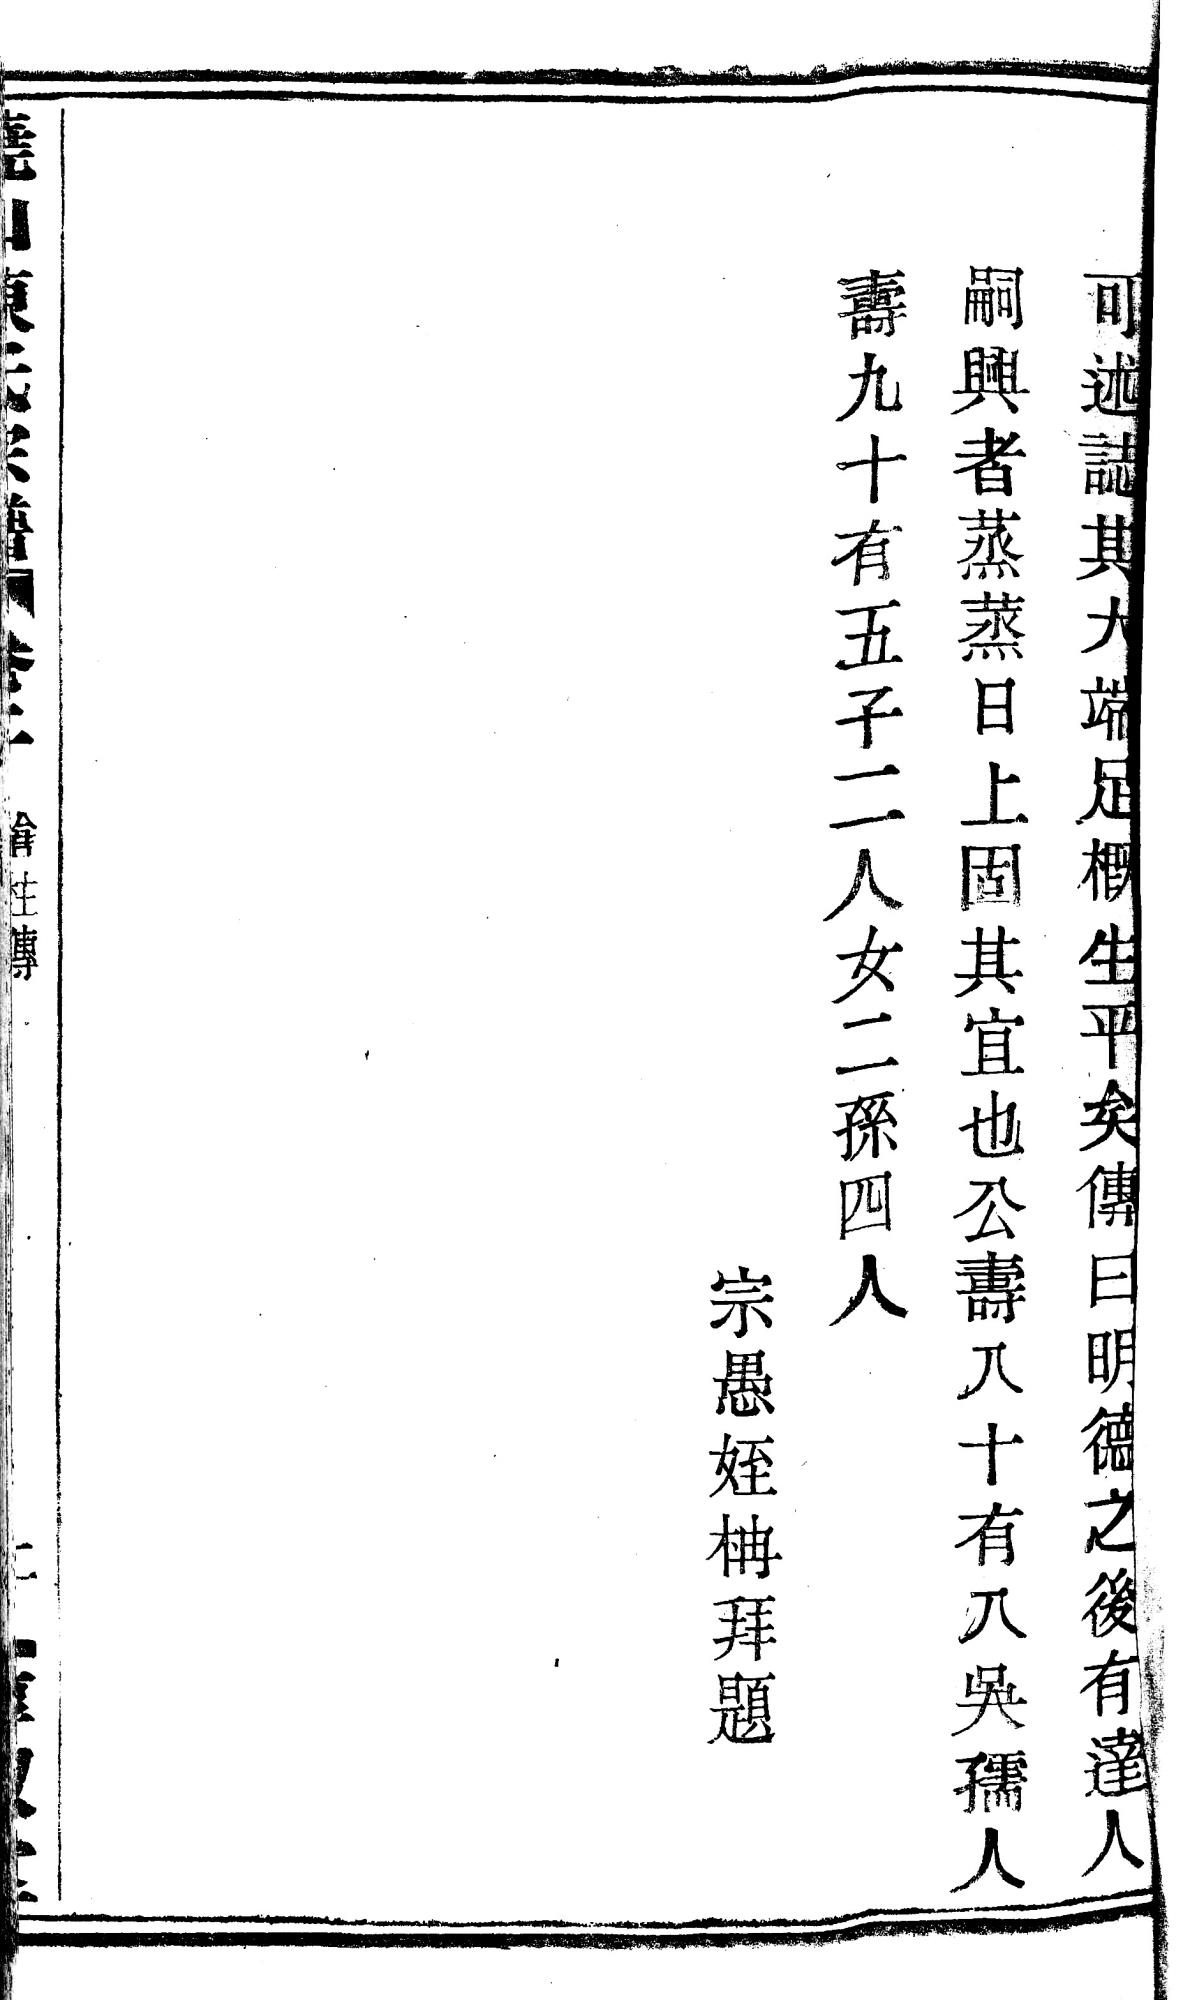 可述誌其大端足概生平矣傳曰明德之後有達人
嗣興者蒸蒸日上固其宜也公壽八十有八吳孺人
壽九十有五子二人女二孫四人
宗愚姪柟拜題